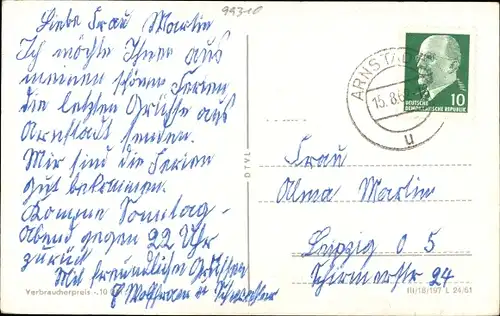 99310
Liebe Frau Martin
Ich möchte Ihnen aus
meinen schönen Ferien
die letzten Grüße aus
Arnstadt senden.
Mir sind die Ferien
gut bekommen.
Komme Sonntag-
Abend gegen 22 Uhr
zurück
Mit freundlichen Grüßen
Wolfram u Schwester
Verbraucherpreis -.10
DTVL
ARNSTADT
15.8.6
u
10
DEUTSCHE
DEMOKRATISCHE REPUBLIK
Frau
Alma Martin
Leipzig O 5
Schirmerstr 24
III/18/197 L 24/61